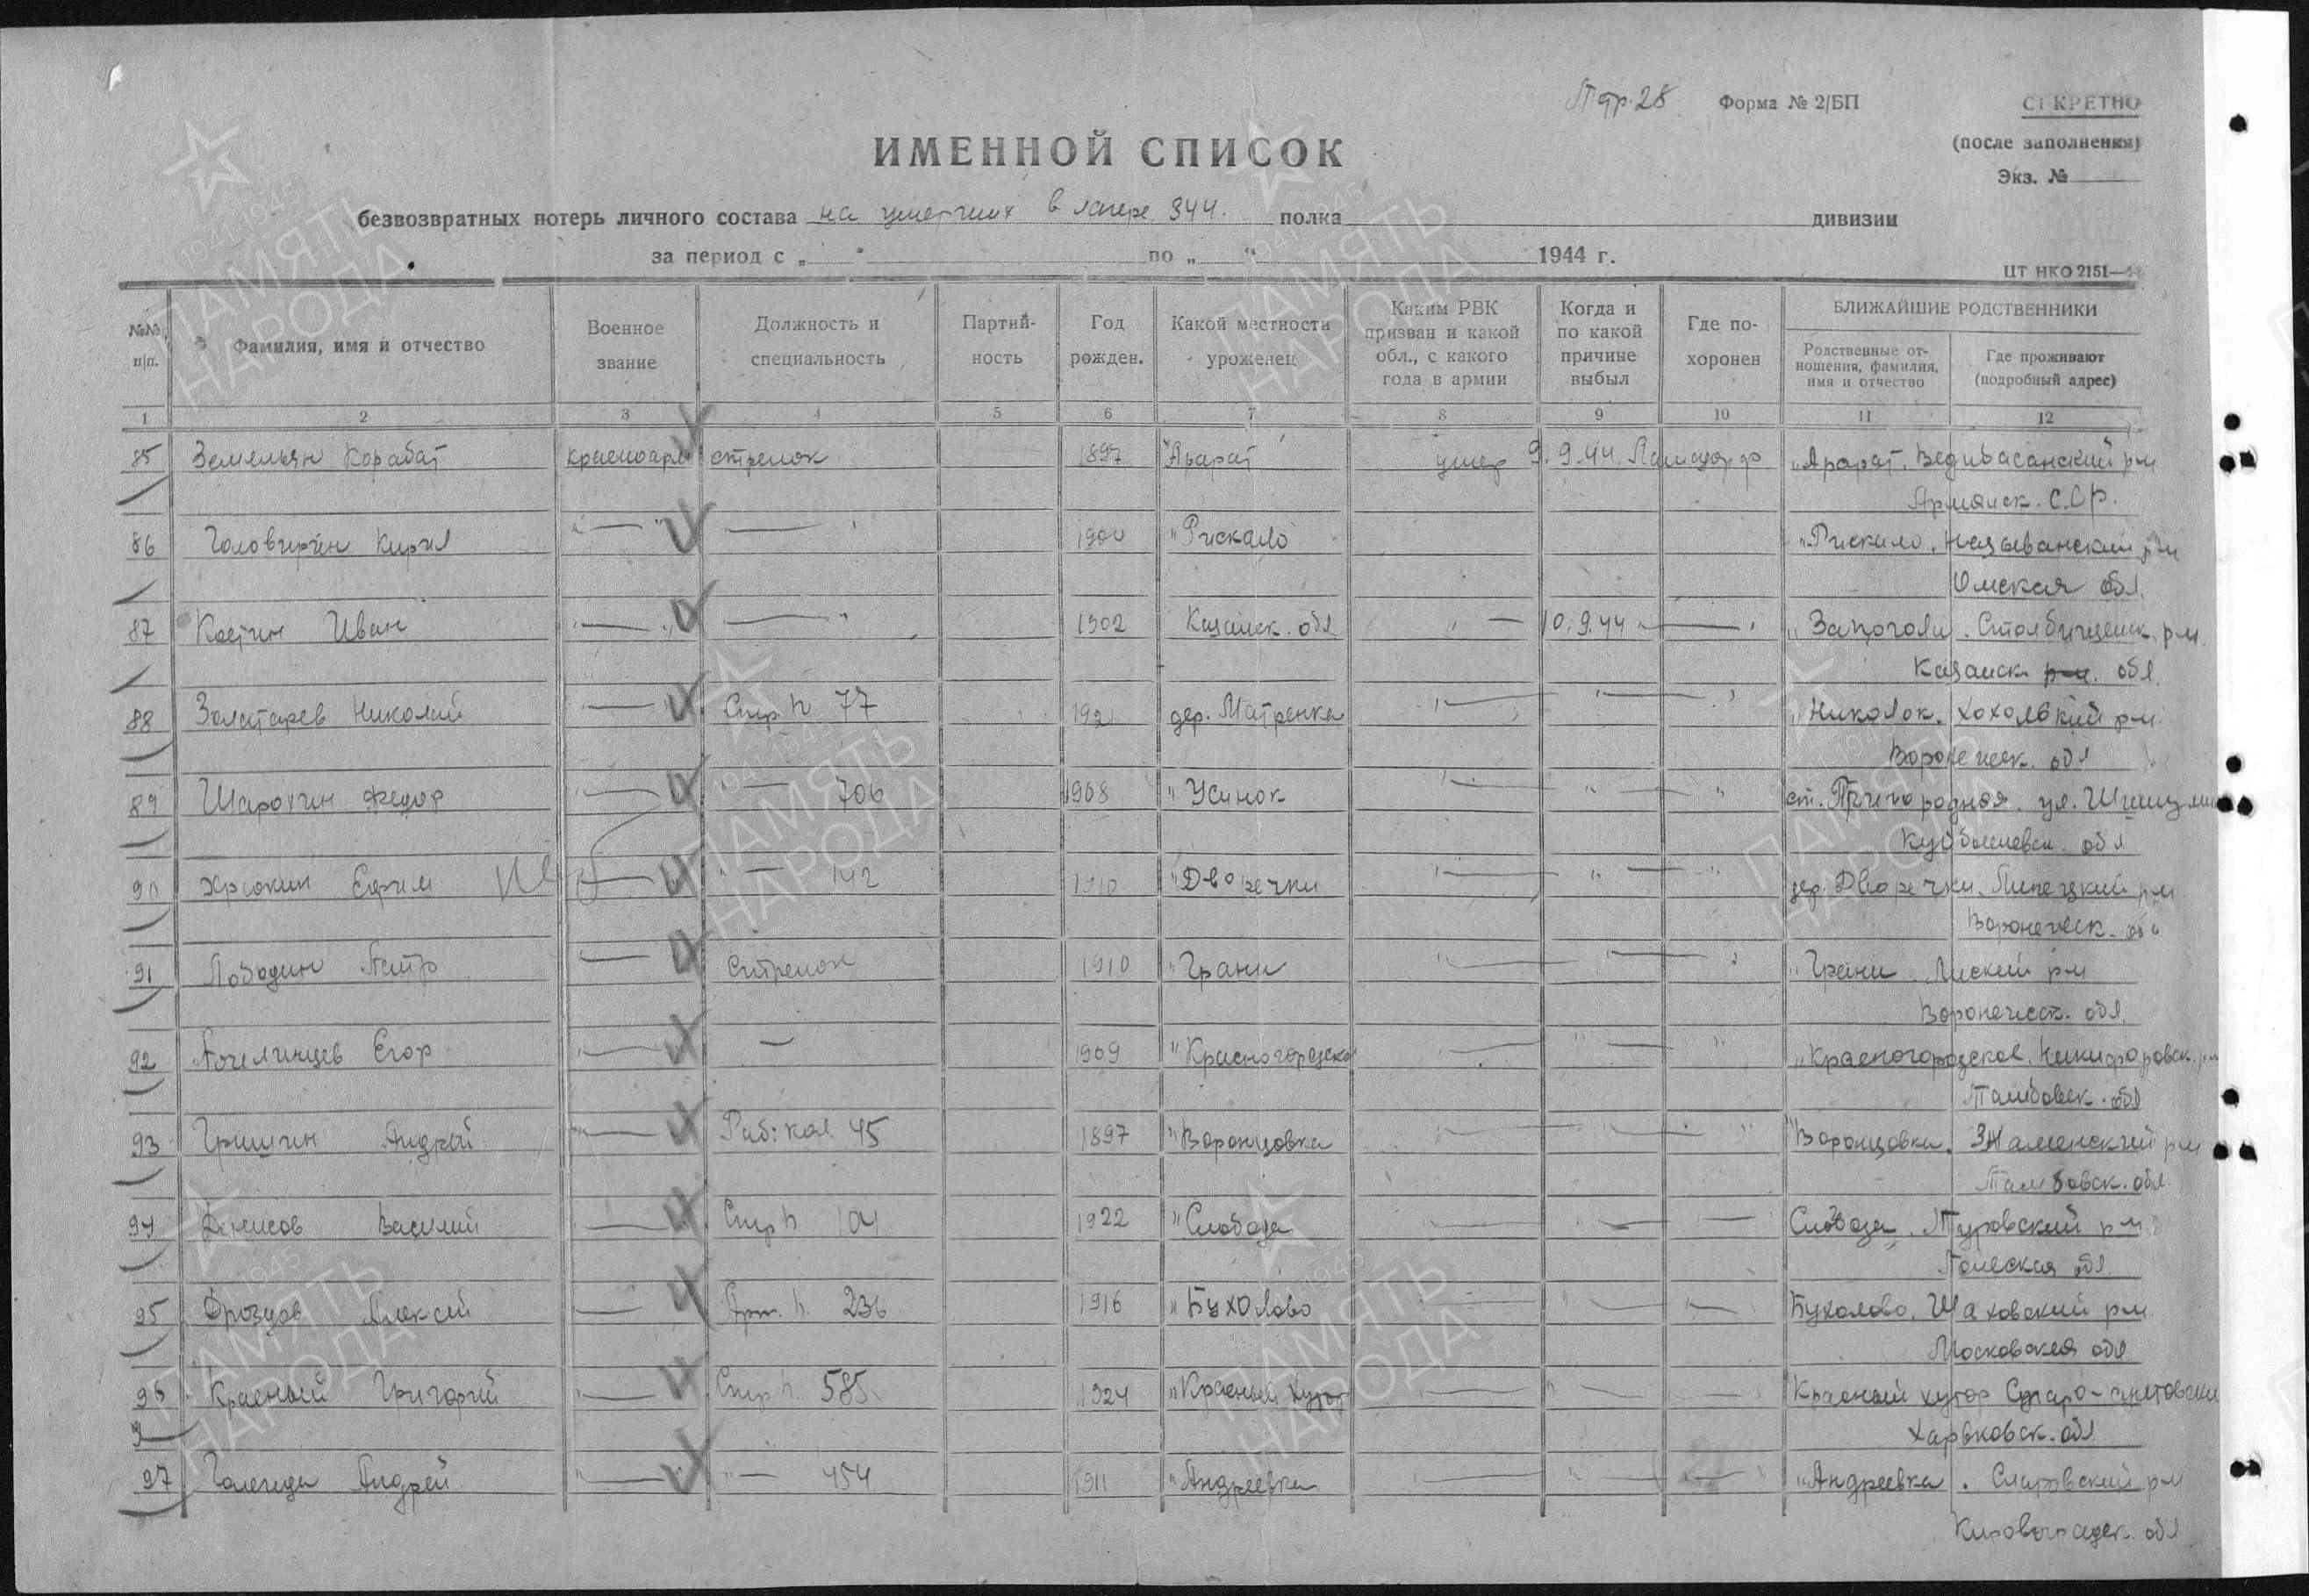 Стр. 28 Форма № 2/БП СЕКРЕТНО
(после заполнения)
Экз. №
ИМЕННОЙ СПИСОК
безвозвратных потерь личного состава на умерших в лагере 344. полка дивизии
за период с „ " по „ " 1944 г.
ЦТ НКО 2151—
№№ п/п. Фамилия, имя и отчество Военное звание Должность и специальность Партийность Год рожден. Какой местности уроженец Каким РВК призван и какой обл., с какого года в армии Когда и по какой причине выбыл Где похоронен БЛИЖАЙШИЕ РОДСТВЕННИКИ
Родственные отношения, фамилия, имя и отчество Где проживают (подробный адрес)
1 2 3 4 5 6 7 8 9 10 11 12
85 Земельян Корабат красноарм стрелок 1897 "Арарат умер 9.9.44 "Арарат. Ведибасанский р-н
Армянск. С.С.Р.
86 Кирил " — " — " 1900 "Рискало "Рискало, Называнский р-н
Омская обл.
87 Костин Иван " — " — " 1902 Казанск. обл " — 10.9.44 — " . Столбищенск. р-н
Казанск р-н. обл.
88 Золотарев Николай " — Стр п 77 192 дер. Матренка " — " — " "Николок. Хохолвкий р-н
Воронежск. обл
89 Шарохин Федор " — " — 706 1908 " Усинок " — " — " ст. Пригородная. ул.
Куйбышевск. обл
90 Хрюкин Ефим " — " — 142 1910 "Дворечки " — " — " дер. Дворечки. Липецкий р-н
Воронежск. обл
91 Лободин Петр " — Стрелок 1910 "Грани " — " — " "Грани. Лиский р-н
Воронежск. обл.
92 Егор " — — 1909 "Красногородско " — " — " "Красногородское. Никифоровск. р-н
Тамбовск. обл
93 Гришин Андрей " — Раб. кол. 45 1897 "Воронцовка " — " — " "Воронцовка. Знаменский р-н
Тамбовск. обл.
94 Денисов Василий " — Стр п 104 1922 "Слобода — — — Слобода. Туровский р-н
Полеская обл.
95 Дроздов Алексей — Арт. п. 236 1916 " Бухолово — — — Бухолово. Шаховский р-н
Московская обл
96 Красный Григорий " — Стр п. 585 1924 "Красный Хутор — — — Красный хутор
Харьковск. обл
97 Андрей " — " — 454 1911 "Андреевка — " — " "Андреевка. р-н
Кировоградск. обл